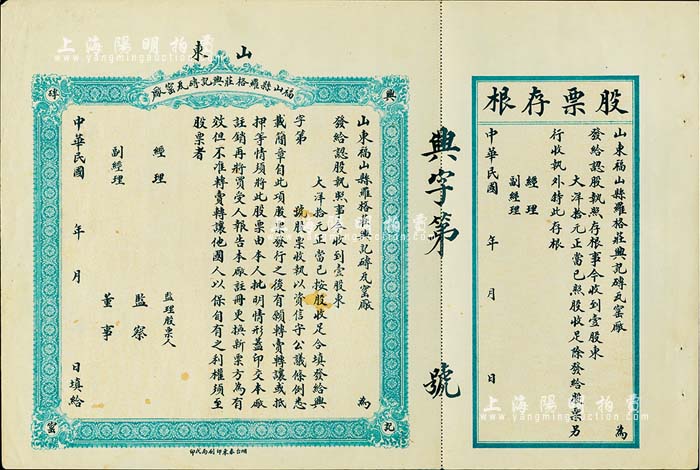 上海陽明拍賣
www.yangmingauction.com
山東
福山縣羅格莊興記磚瓦窰廠
興
磚
記
窰
山東福山縣羅格莊興記磚瓦窰廠 為
發給認股執照事今收到壹股東
大洋拾元正當已按股收足合填發給興
字第 號股票收執以資信守公議條例悉
載簡章自此項股票發行之後有願轉賣轉讓或抵
押等情須將此股票由本人批明情形蓋印交本廠
註銷再將買受人報告本廠註冊更換新票方為有
效但不准轉賣轉讓他國人以保自有之利權須至
股票者
監理股票人
經理
副經理
監察
董事
中華民國 年 月 日填給
烟台泰東印刷局代印
興字第 號
股票存根
山東福山縣羅格莊興記磚瓦窰廠 為
發給認股執照存根事今收到壹股東
大洋拾元正當已照股收足除發給股票另
行收執外餘此存根
經理
副經理
中華民國 年 月 日
上海陽明拍賣
www.yangmingauction.com